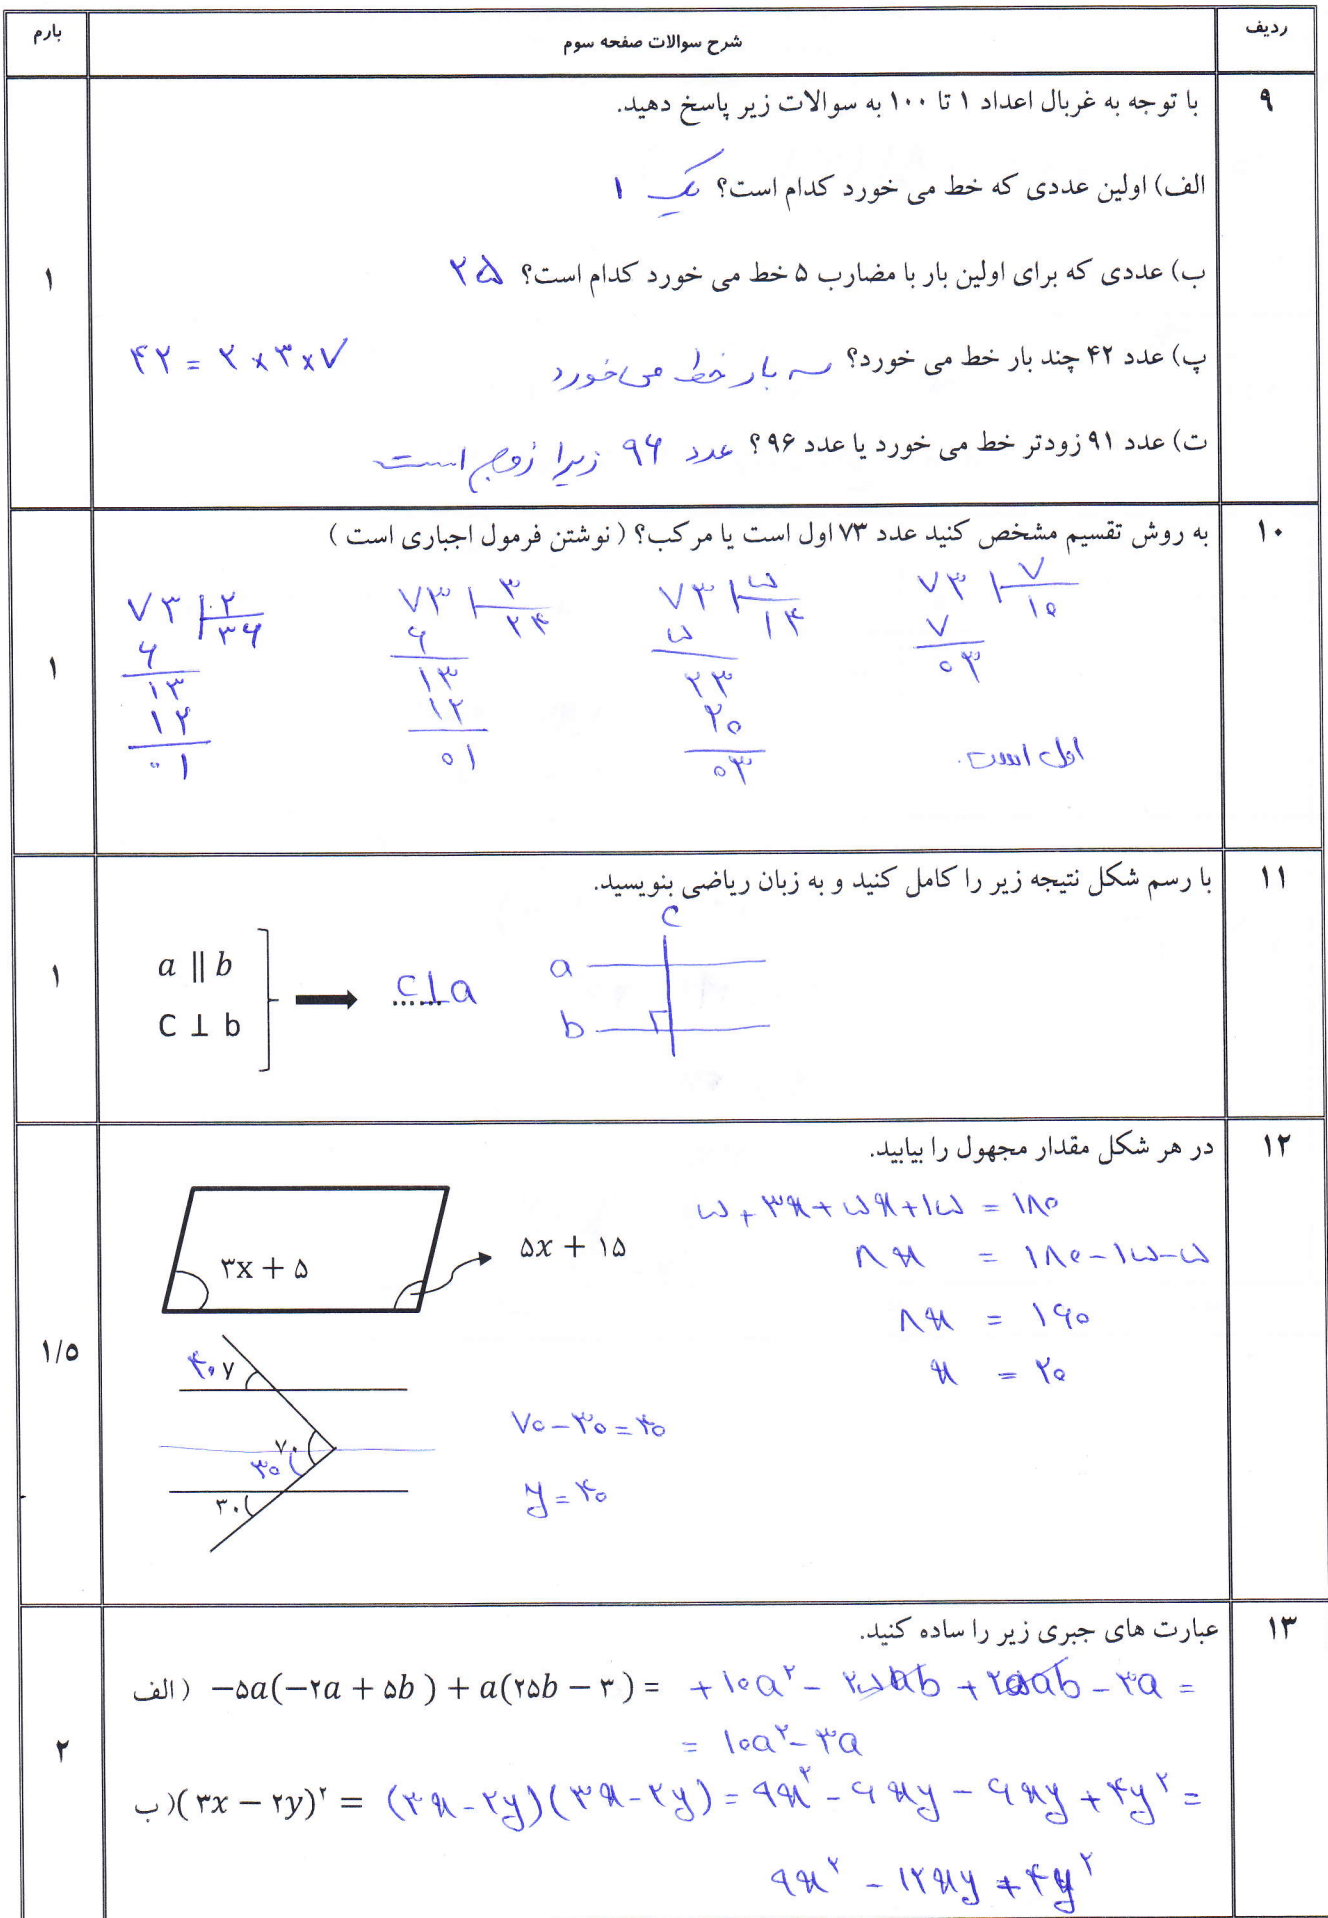 ردیف شرح سوالات صفحه سوم بارم
۹ با توجه به غربال اعداد ۱ تا ۱۰۰ به سوالات زیر پاسخ دهید.
الف) اولین عددی که خط می خورد کدام است؟ یک ۱
ب) عددی که برای اولین بار با مضارب ۵ خط می خورد کدام است؟ ۲۵
۱
پ) عدد ۴۲ چند بار خط می خورد؟ سه بار خط می‌خورد ۴۲ = ۲ × ۳ × ۷
ت) عدد ۹۱ زودتر خط می خورد یا عدد ۹۶؟ عدد ۹۶ زیرا زوج است
۱۰ به روش تقسیم مشخص کنید عدد ۷۳ اول است یا مرکب؟ ( نوشتن فرمول اجباری است )
۷۳ | ۲ ۷۳ | ۳ ۷۳ | ۵ ۷۳ | ۷
۶ ۳۶ ۶ ۲۴ ۵ ۱۴ ۷ ۱۰
۱۳ ۱۳ ۲۳ ۰۳
۱
۱۲ ۱۲ ۲۰
۰۱ ۰۱ ۰۳ اول است.
۱۱ با رسم شکل نتیجه زیر را کامل کنید و به زبان ریاضی بنویسید.
c
a ∥ b a
۱
C⊥a
C ⊥ b b
۱۲ در هر شکل مقدار مجهول را بیابید.
۵ + ۳x + ۵x + ۱۵ = ۱۸۰
۳x + ۵ ۵x + ۱۵ ۸x = ۱۸۰ - ۱۵ - ۵
۸x = ۱۶۰
۱/۵
۴۰ y x = ۲۰
۷۰ - ۳۰ = ۴۰
۷۰
۳۰
y = ۴۰
۳۰
۱۳ عبارت های جبری زیر را ساده کنید.
الف) −۵a(−۲a + ۵b) + a(۲۵b − ۳) = +۱۰a² - ۲۵ab + ۲۵ab - ۳a =
= ۱۰a² - ۳a
۲
ب) (۳x − ۲y)² = (۳x - ۲y)(۳x - ۲y) = ۹x² - ۶xy - ۶xy + ۴y² =
۹x² - ۱۲xy + ۴y²